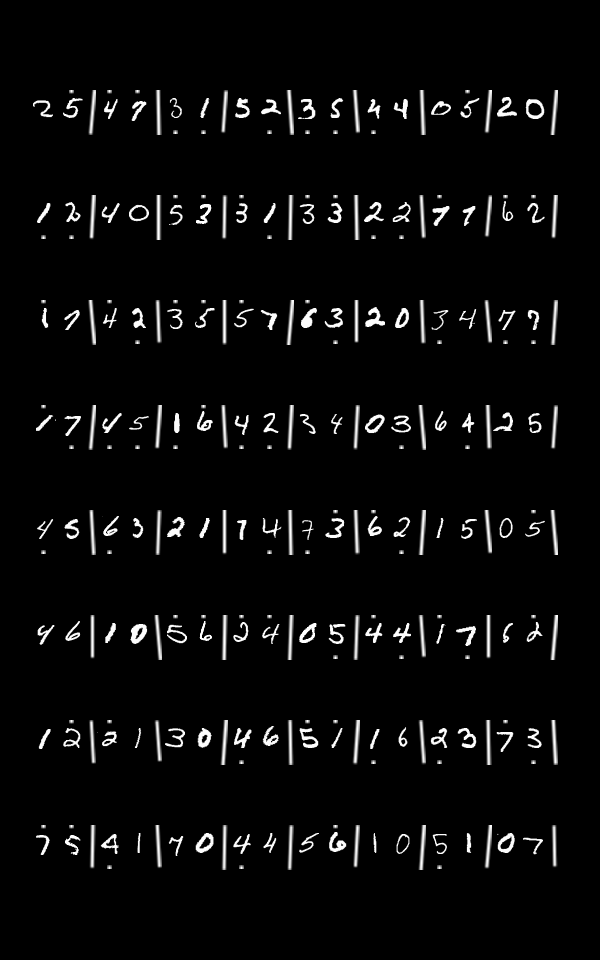 2 5̇ | 4̇ 7̇ | 3̣ 1̣ | 5 2̣ | 3̣ 5̣ | 4̣ 4 | 0 5̇ | 2 0 |
1̣ 2̣ | 4 0 | 5̇ 3̇ | 3̇ 1̣ | 3̇ 3̇ | 2̣ 2̣ | 7̇ 7 | 6̇ 2̇ |
1̇ 7̇ | 4̇ 2̣ | 3̇ 5̇ | 5̇ 7 | 6̇ 3̣ | 2 0 | 3̣ 4 | 7̣ 7̣ |
1̇ 7̣ | 4̣ 5̣ | 1̣ 6̇ | 4̣ 2̣ | 3 4 | 0 3̣ | 6 4̣ | 2 5 |
4̣ 5 | 6̣ 3 | 2 1 | 7 4̣ | 7̣ 3̇ | 6̇ 2̣ | 1 5 | 0 5̇ |
4 6 | 1 0 | 5̇ 6̇ | 2̇ 4̇ | 0 5̣ | 4̇ 4̣ | 1̇ 7̣ | 6 2̇ |
1 2̇ | 2̇ 1 | 3 0 | 4̣ 6 | 5̇ 1̇ | 1̣ 6 | 2̣ 3 | 7̇ 3̣ |
7̇ 5̇ | 4̣ 1 | 7 0 | 4̣ 4 | 5 6̇ | 1 0 | 5̣ 1 | 0 7 |